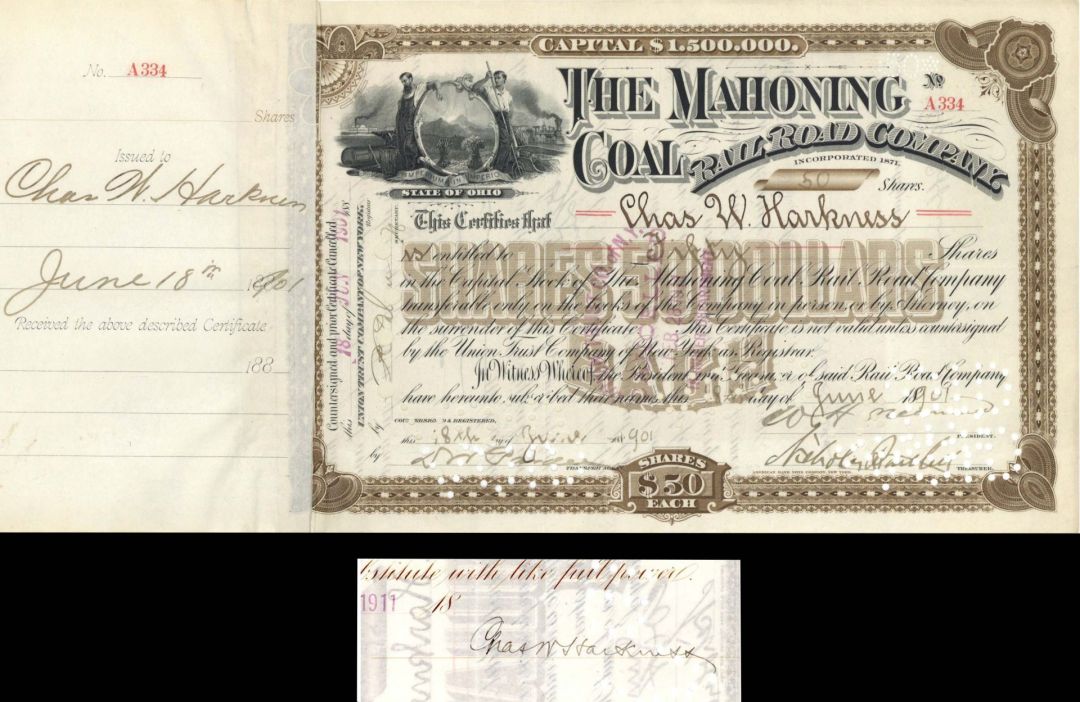 No. A334
Shares
Issued to
Chas W. Harkness
June 18th 1901
Received the above described Certificate
188
CAPITAL $1.500,000.
THE MAHONING
COAL RAIL ROAD COMPANY
No A334
INCORPORATED 1871.
50 Shares.
IMPERIUM IN IMPERIO
STATE OF OHIO
This Certifies that Chas W. Harkness
is entitled to Fifty Shares
in the Capital Stock of The Mahoning Coal Rail Road Company
transferable only on the books of the Company in person or by Attorney, on
the surrender of this Certificate. This Certificate is not valid unless countersigned
by the Union Trust Company of New York as Registrar.
In Witness Whereof, the President and Treasurer of said Rail Road Company
have hereunto subscribed their names this day of June 1901
PRESIDENT.
COUNTERSIGNED & REGISTERED,
this 18th day of June 1901
by
TRANSFER AGENT.
TREASURER.
AMERICAN BANK NOTE COMPANY NEW YORK.
SHARES
$50
EACH
Countersigned and prior Certificate Cancelled
this 18 day of JUN 1901
UNION TRUST COMPANY OF NEW YORK,
Registrar
by
SECRETARY.
SHARES 50 DOLLARS
EACH
bstitute with like full power.
1911 18
Chas W Harkness